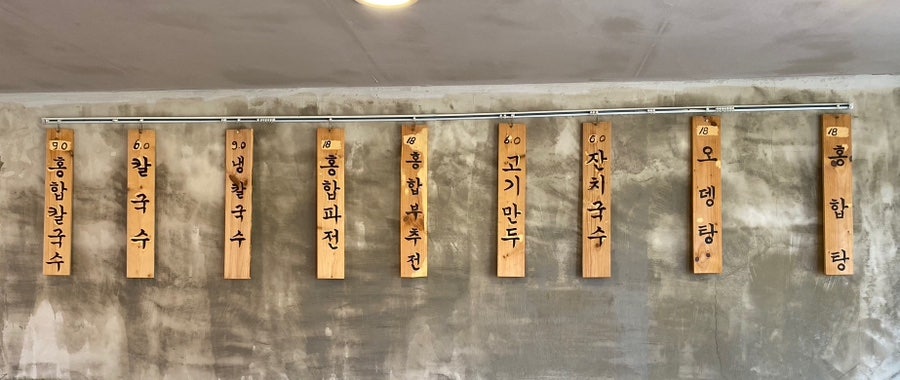 9.0
홍합칼국수
6.0
칼국수
9.0
냉칼국수
18
홍합파전
18
홍합부추전
6.0
고기만두
6.0
잔치국수
18
오뎅탕
18
홍합탕